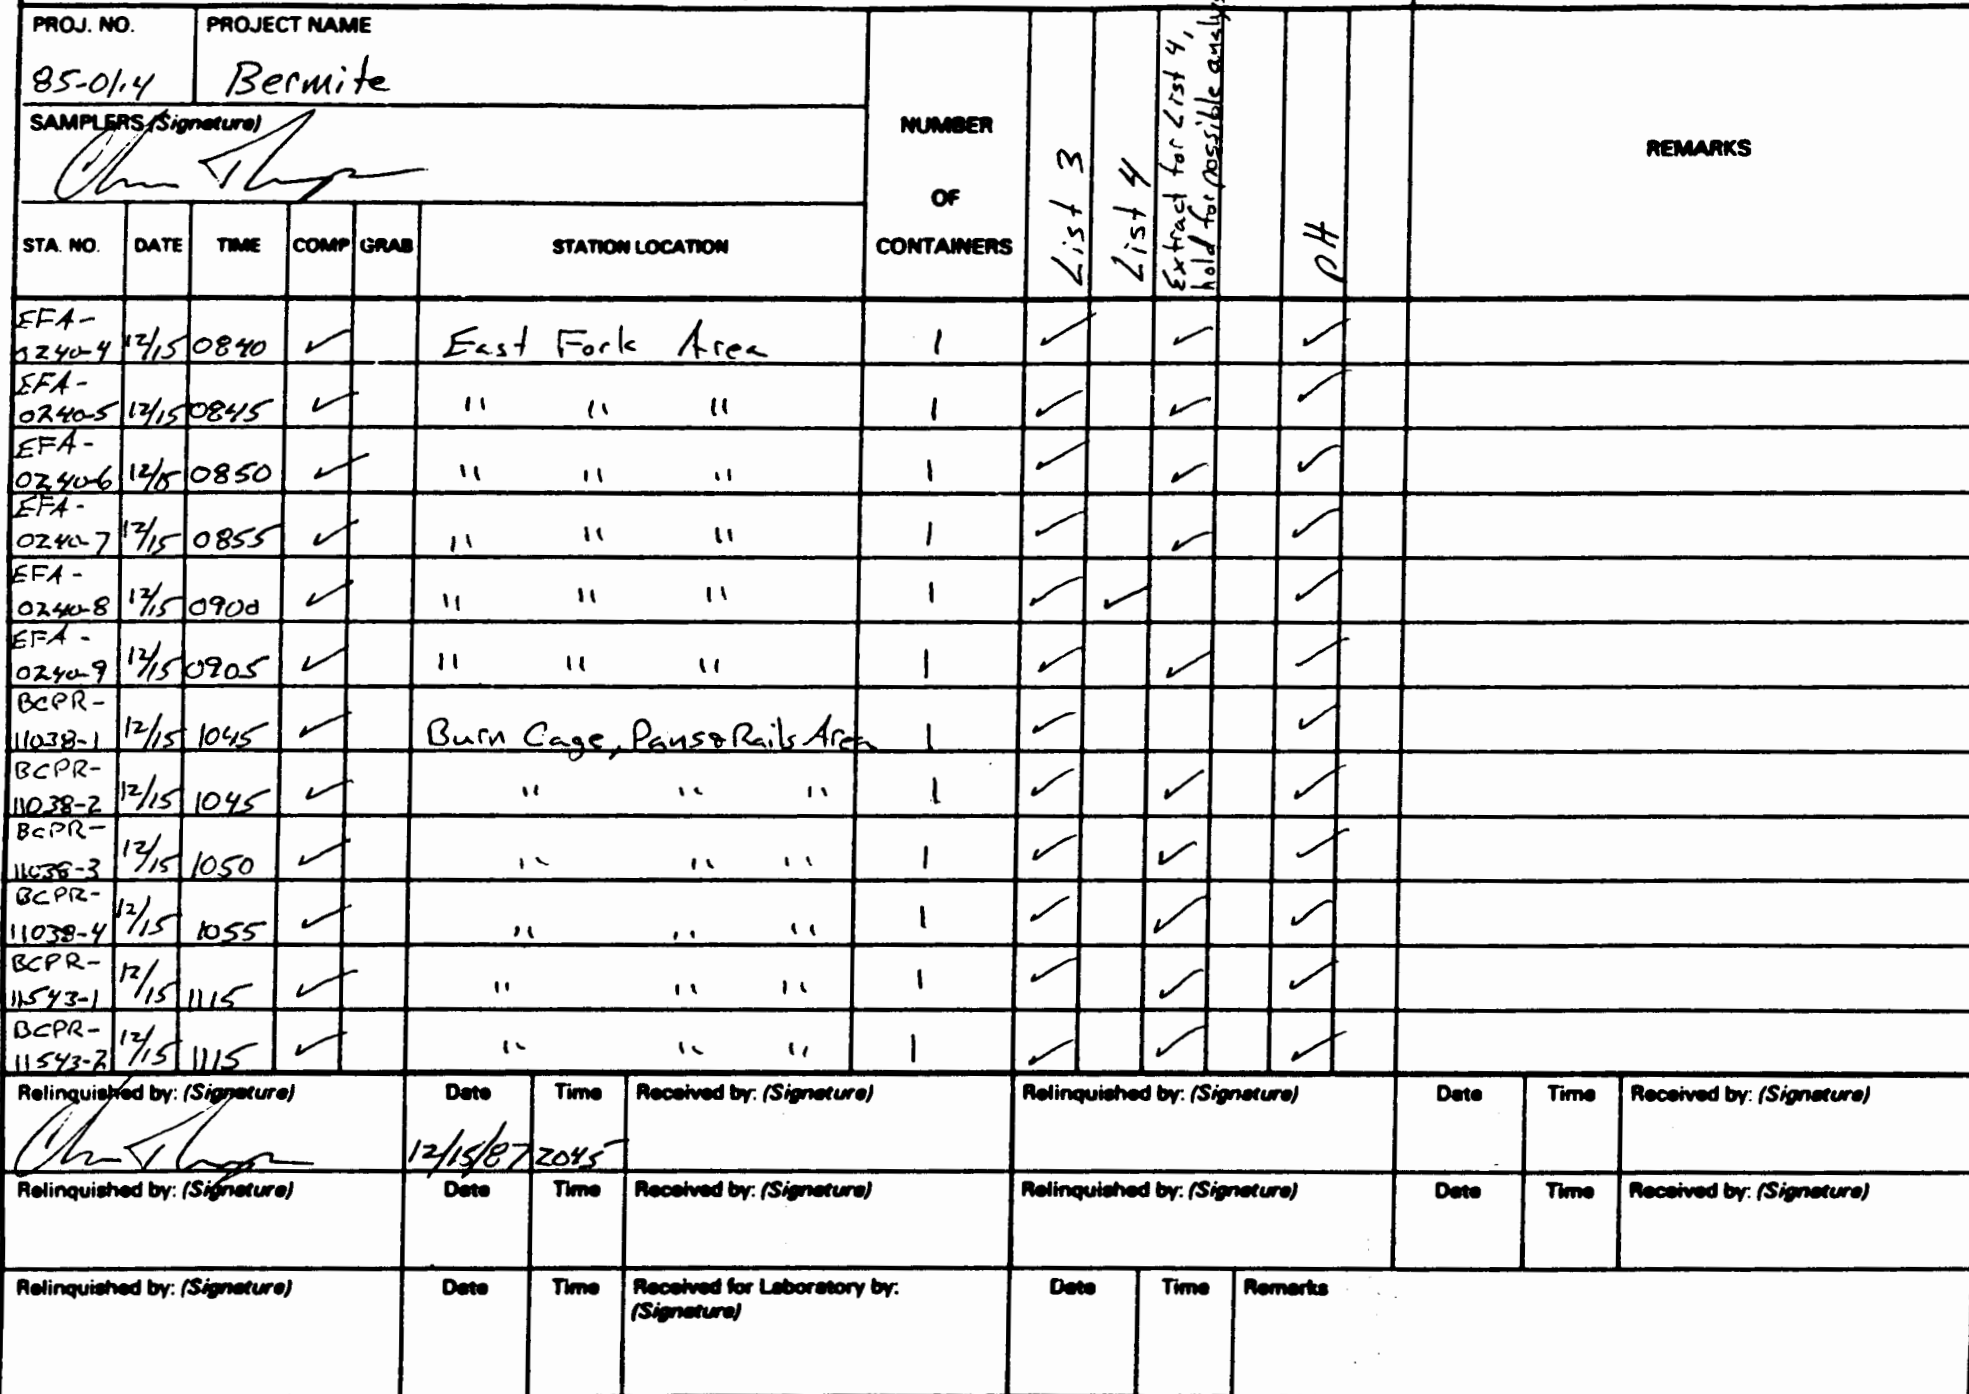 PROJ. NO. PROJECT NAME
85-01.4 Bermite
SAMPLERS (Signature)
NUMBER
OF
CONTAINERS
List 3
List 4
Extract for List 4,
hold for possible
pH
REMARKS
STA. NO. DATE TIME COMP GRAB STATION LOCATION
EFA-
0240-4 12/15 0840 ✓ East Fork Area 1 ✓ ✓ ✓
EFA-
0240-5 12/15 0845 ✓ " " " 1 ✓ ✓ ✓
EFA-
0240-6 12/15 0850 ✓ " " " 1 ✓ ✓ ✓
EFA-
0240-7 12/15 0855 ✓ " " " 1 ✓ ✓ ✓
EFA-
0240-8 12/15 0900 ✓ " " " 1 ✓ ✓ ✓
EFA-
0240-9 12/15 0905 ✓ " " " 1 ✓ ✓ ✓
BCPR-
11038-1 12/15 1045 ✓ Burn Cage, Pans & Rails Area 1 ✓ ✓
BCPR-
11038-2 12/15 1045 ✓ " " " 1 ✓ ✓ ✓
BCPR-
11038-3 12/15 1050 ✓ " " " 1 ✓ ✓ ✓
BCPR-
11038-4 12/15 1055 ✓ " " " 1 ✓ ✓ ✓
BCPR-
11543-1 12/15 1115 ✓ " " " 1 ✓ ✓ ✓
BCPR-
11543-2 12/15 1115 ✓ " " " 1 ✓ ✓ ✓
Relinquished by: (Signature) Date Time Received by: (Signature) Relinquished by: (Signature) Date Time Received by: (Signature)
12/15/87 2045
Relinquished by: (Signature) Date Time Received by: (Signature) Relinquished by: (Signature) Date Time Received by: (Signature)
Relinquished by: (Signature) Date Time Received for Laboratory by: Date Time Remarks
(Signature)